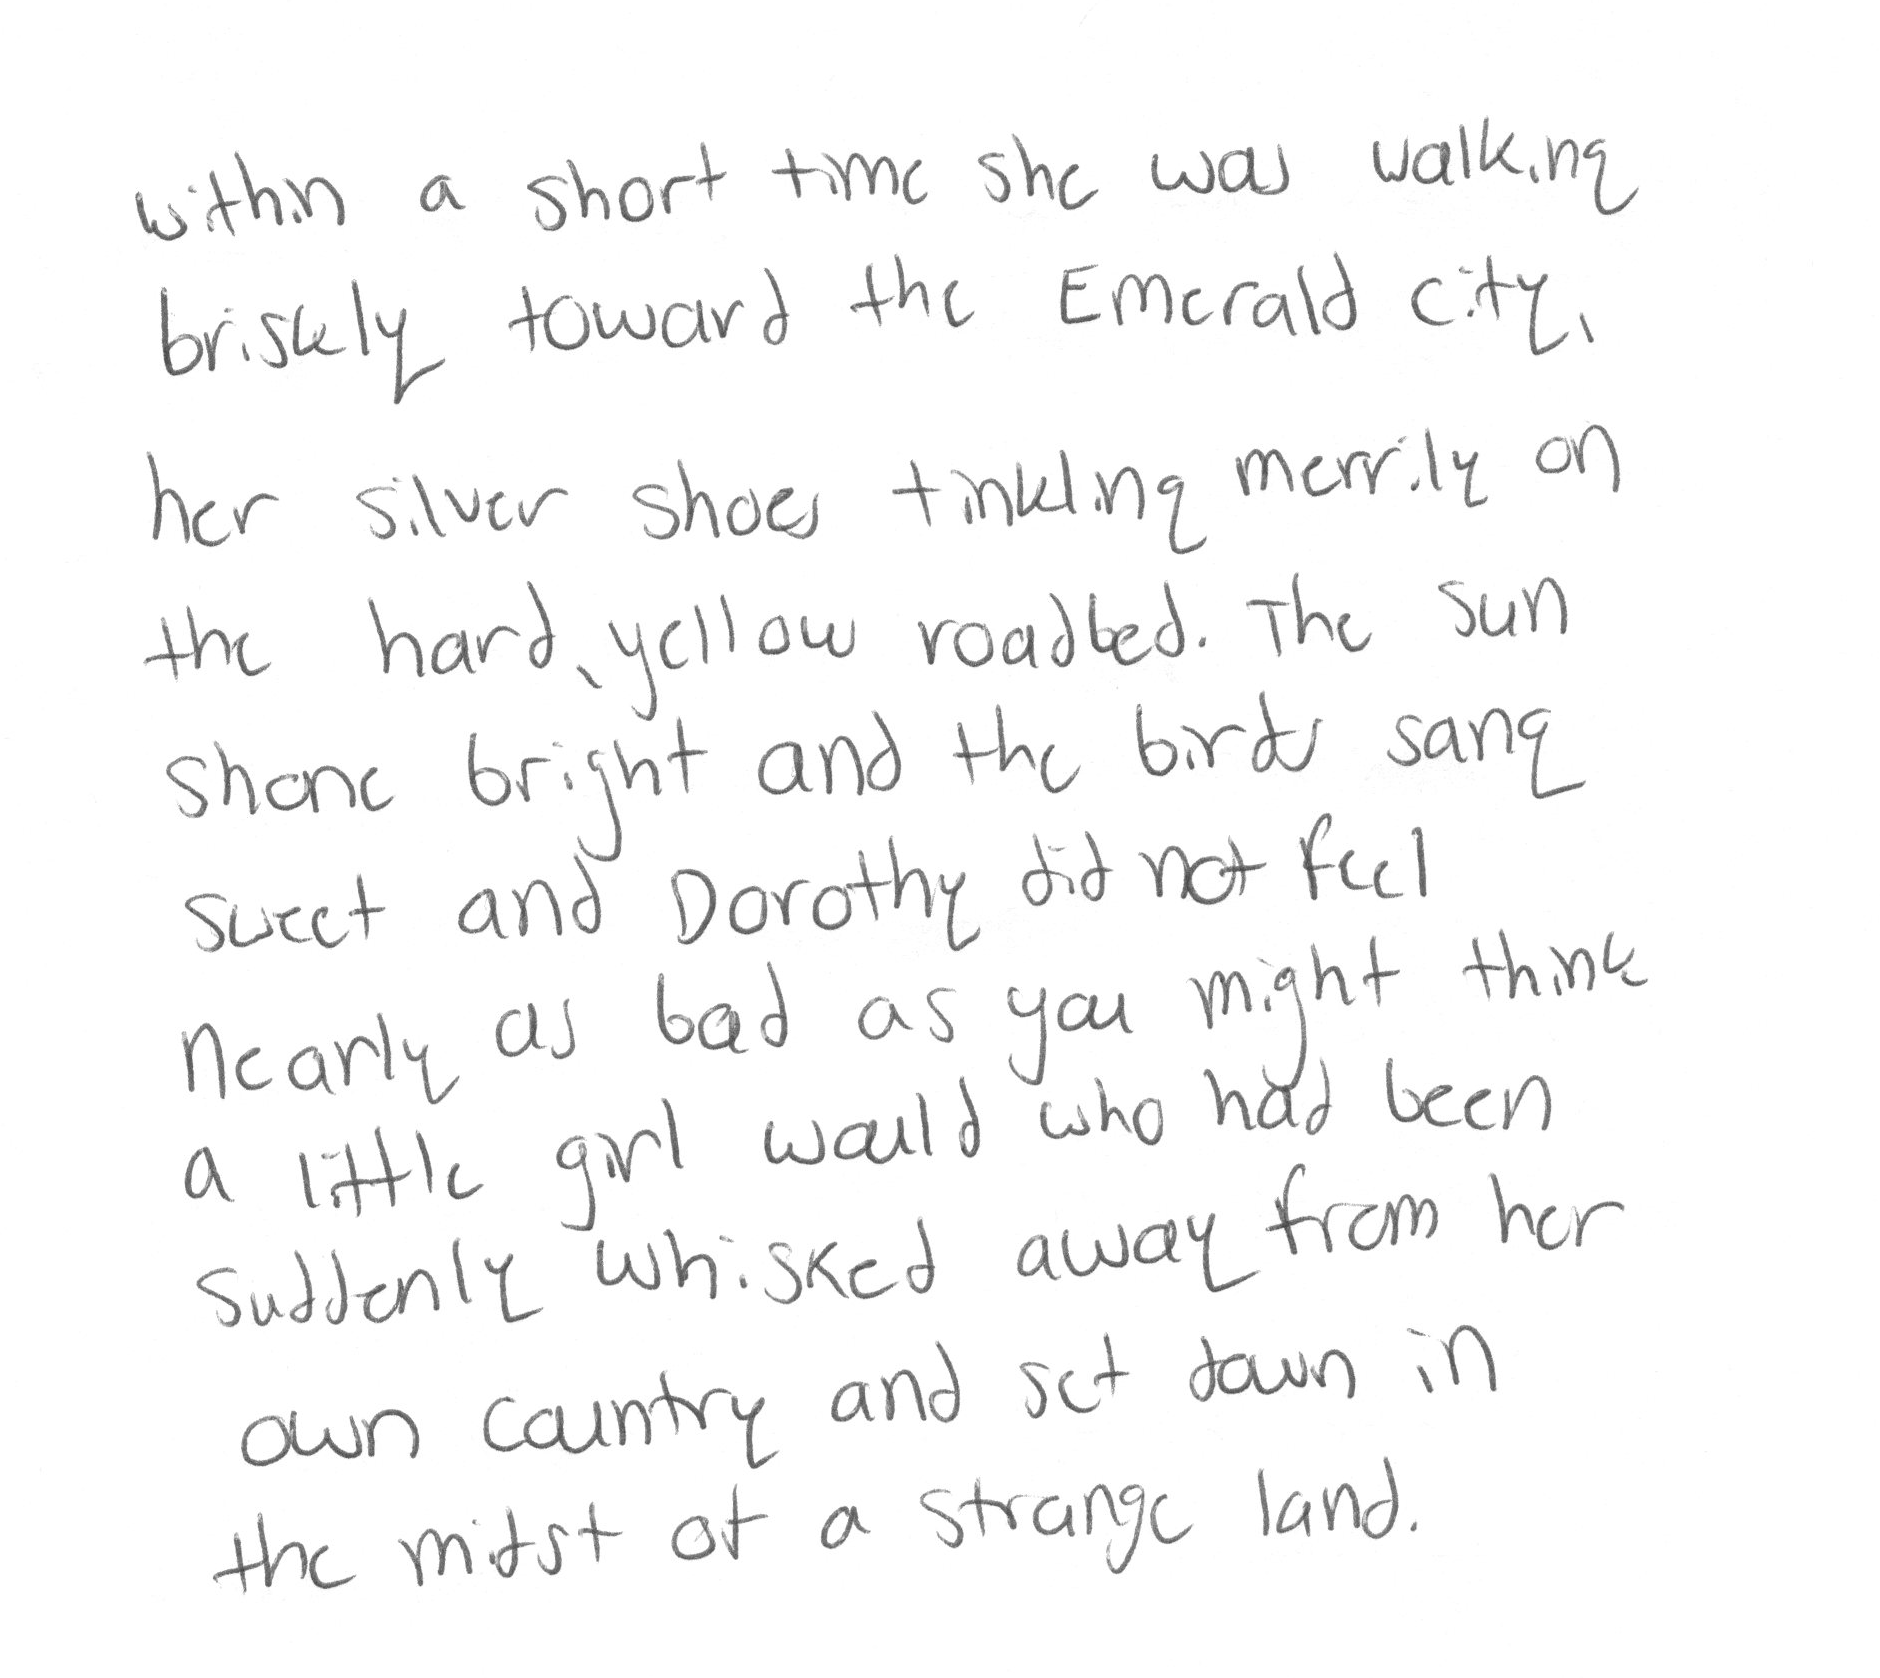 within a short time she was walking
briskly toward the Emerald city,
her silver shoes tinkling merrily on
the hard, yellow roadbed. The sun
shone bright and the birds sang
sweet and Dorothy did not feel
nearly as bad as you might think
a little girl would who had been
suddenly whisked away from her
own country and set down in
the midst of a strange land.